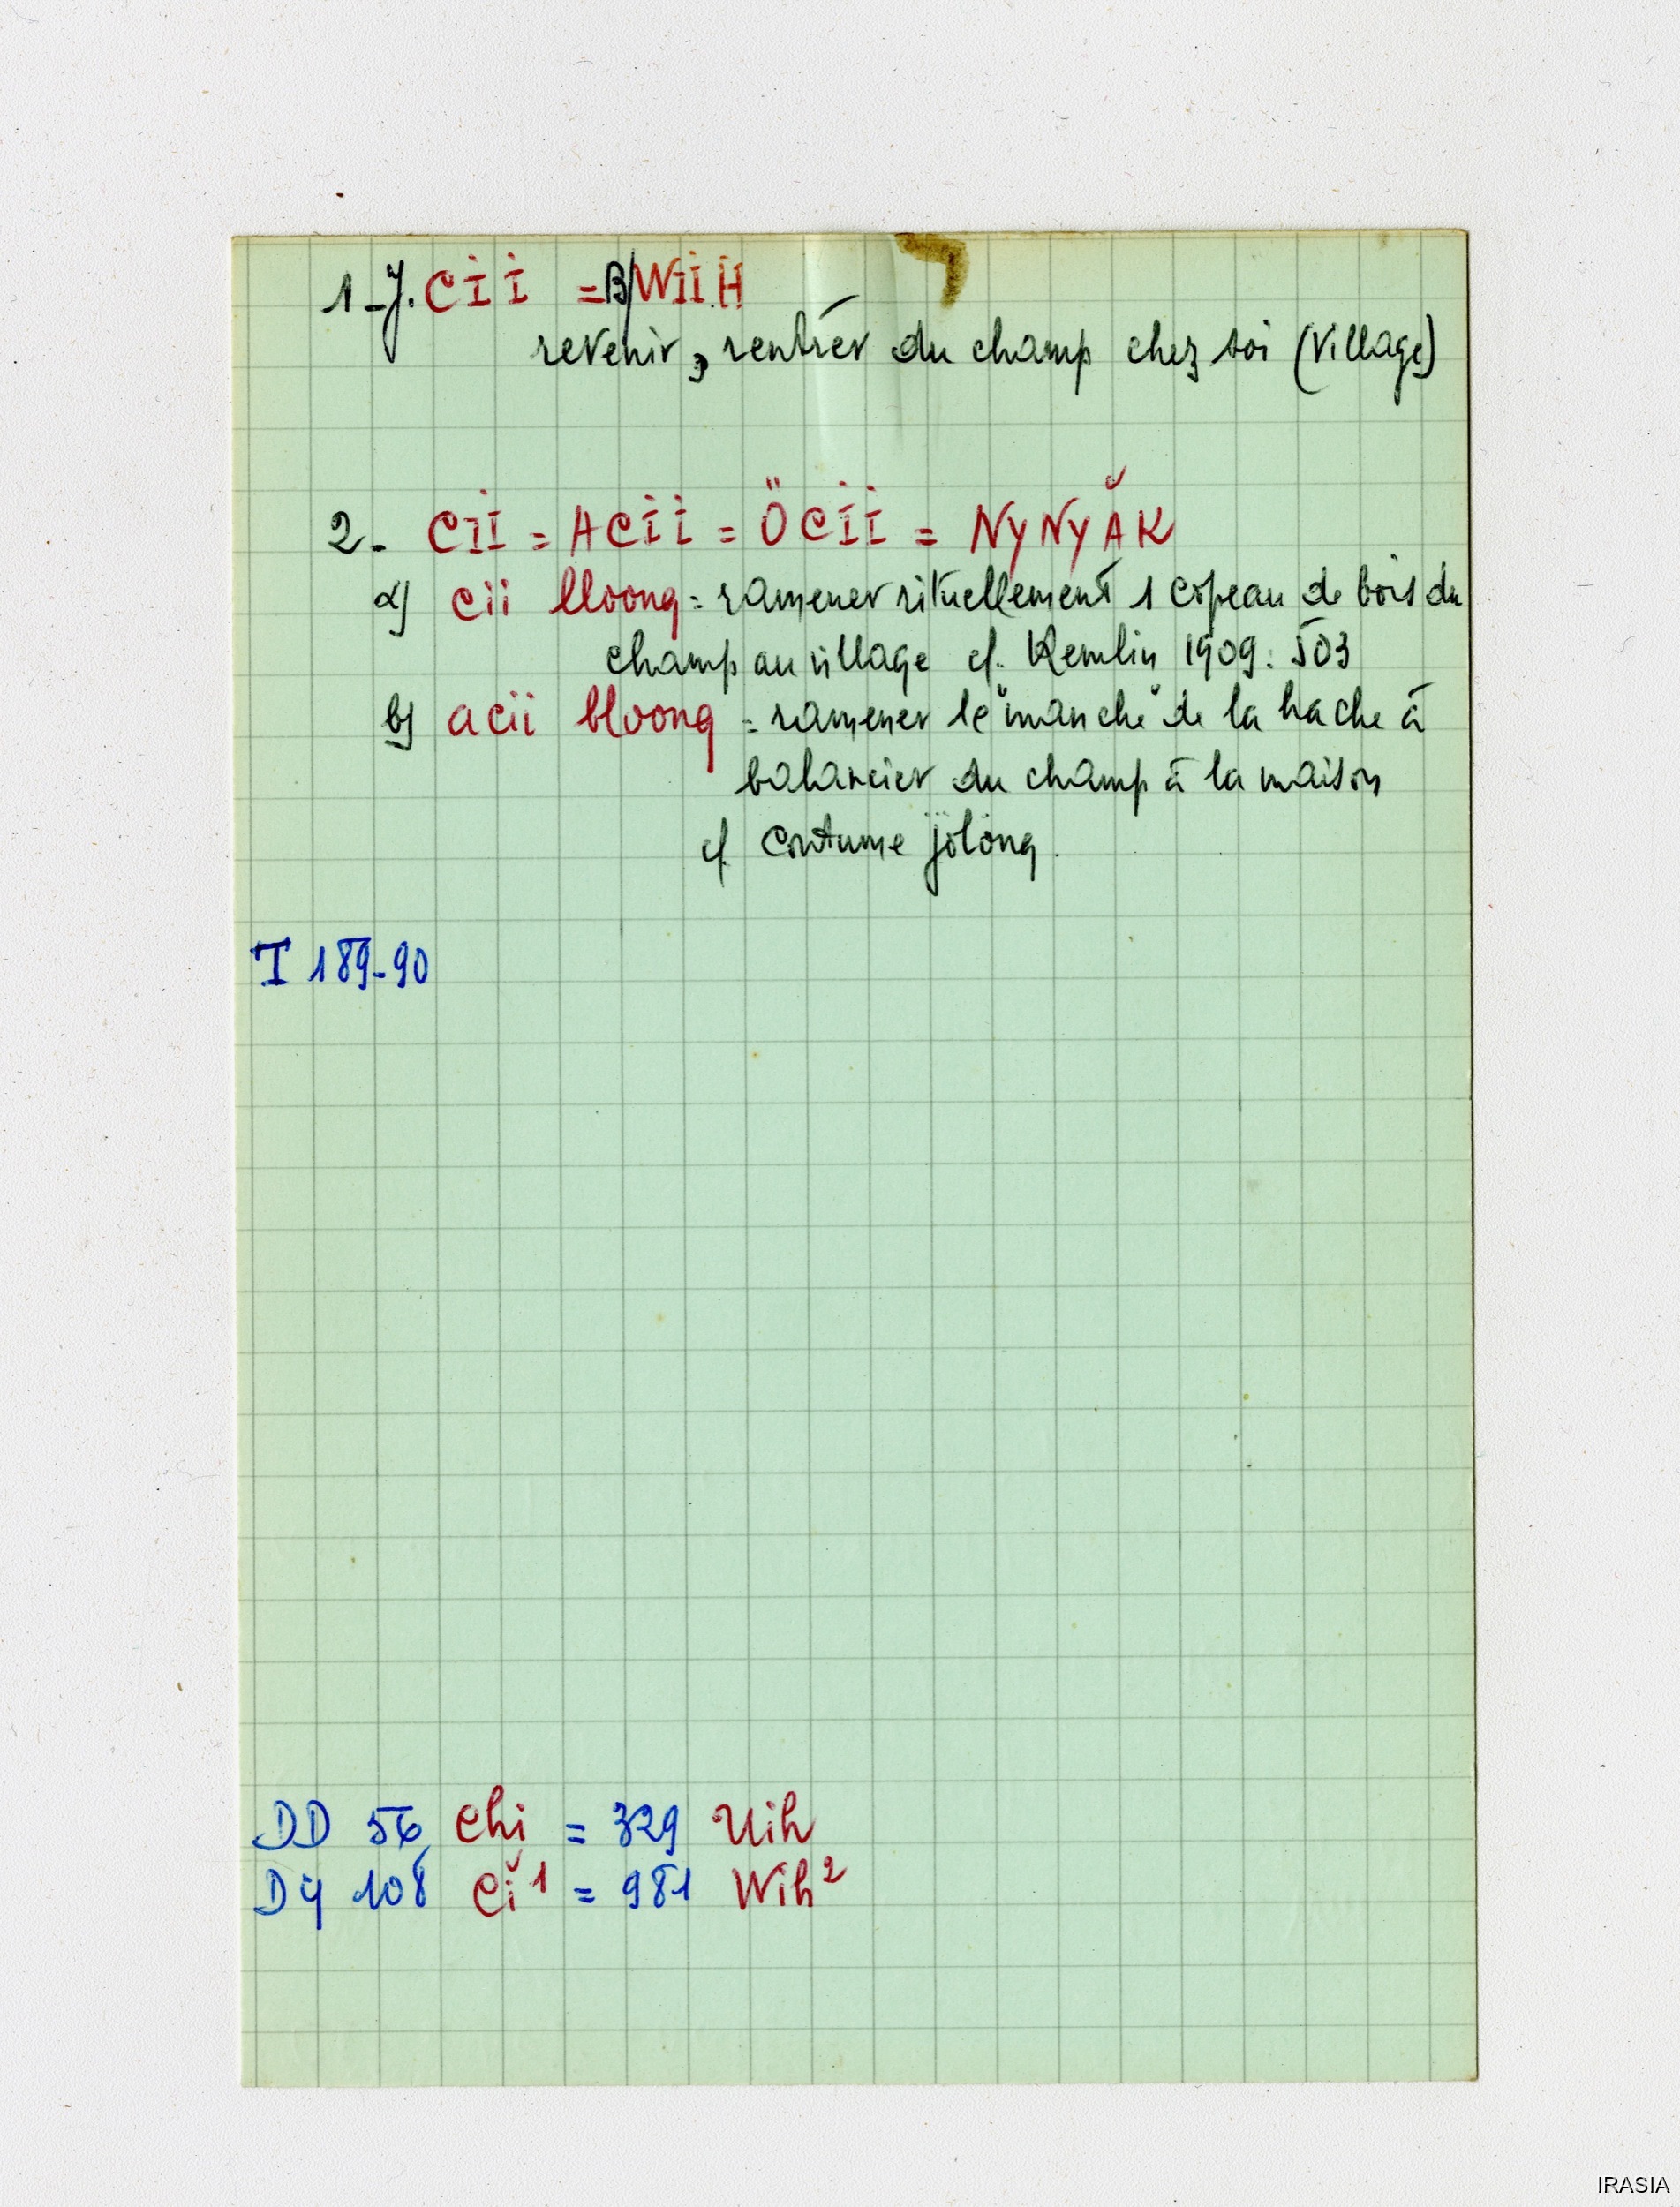 1_J. CII = B/WIIH
revenir, rentrer du champ chez soi (village)
2_ CII = ACII = ÖCII = NYNYĂK
a) cii bloong = ramener rituellement 1 copeau de bois du
champ au village cf. Kemlin 1909: 503
b) acii bloong = ramener le "manche" de la hache à
balancier du champ à la maison
cf coutume jölöng.
I 189-90
DD 56 Chi = 329 Uih
DY 108 Cĭ¹ = 981 Wih²
IRASIA